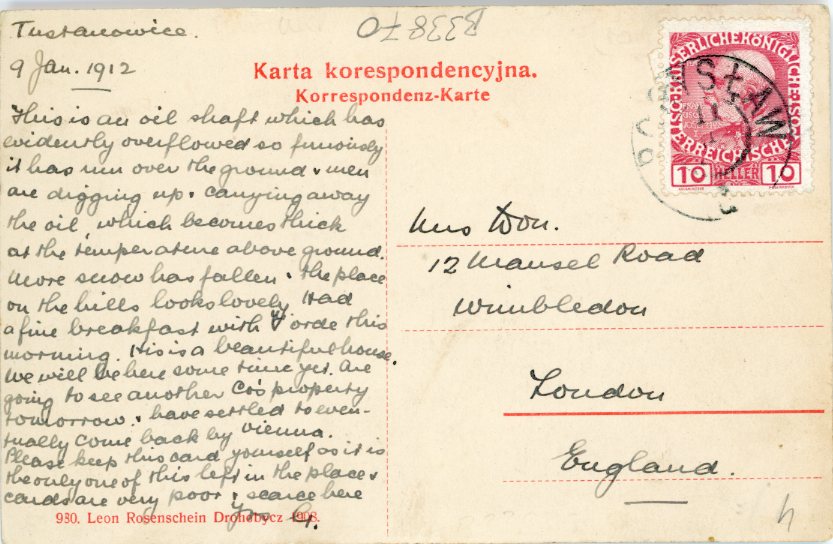 B33870
Tustanowice.
9 Jan. 1912
Karta korespondencyjna.
Korrespondenz-Karte
This is an oil shaft which has
evidently overflowed so furiously
it has run over the ground & men
are digging up & carrying away
the oil, which becomes thick
at the temperature above ground.
More snow has fallen & the place
on the hills looks lovely Had
a fine breakfast with Forde this
morning. His is a beautiful house.
We will be here some time yet. Are
going to see another Co's property
tomorrow. & have settled to even-
tually come back by Vienna.
Please keep this card yourself as it is
the only one of this left in the place &
cards are very poor & scarce here
G.
980. Leon Rosenschein Drohobycz 1908.
KAISERLICHE KÖNIGLICHE
ÖSTERREICHISCHE
10 HELLER 10
BORYSŁAW
Mrs Don.
12 Mansel Road
Wimbledon
London
England.
4